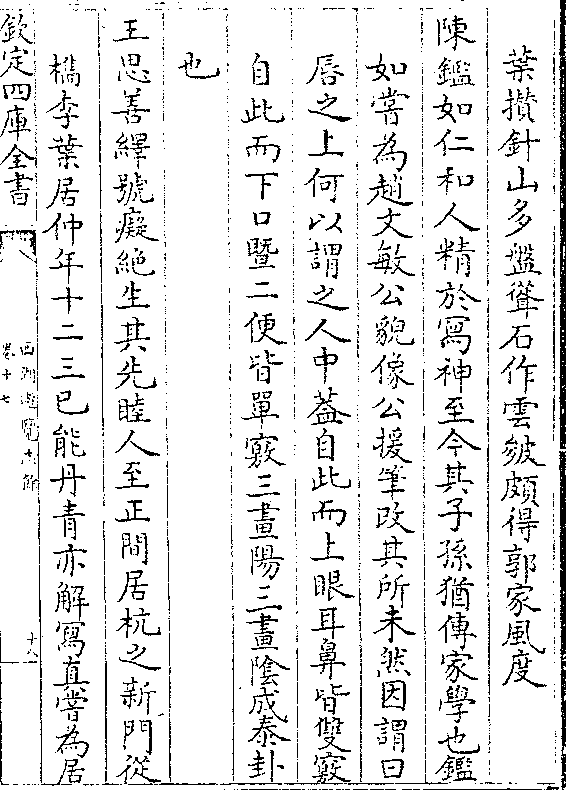 葉攢針山多盤聳石作雲皴頗得郭家風度
陳鑑如仁和人精於寫神至今其子孫猶傳家學也鑑
如嘗為趙文敏公貌像公援筆改其所未然因謂曰
唇之上何以謂之人中葢自此而上眼耳鼻皆雙竅
自此而下口暨二便皆單竅三畫陽三畫陰成泰卦
也
王思善繹號癡絶生其先睦人至正間居杭之新門從
檇李葉居仲年十二三已能丹青亦解寫真嘗為居
欽定四庫全書
西湖遊覽志餘
卷十七
十八